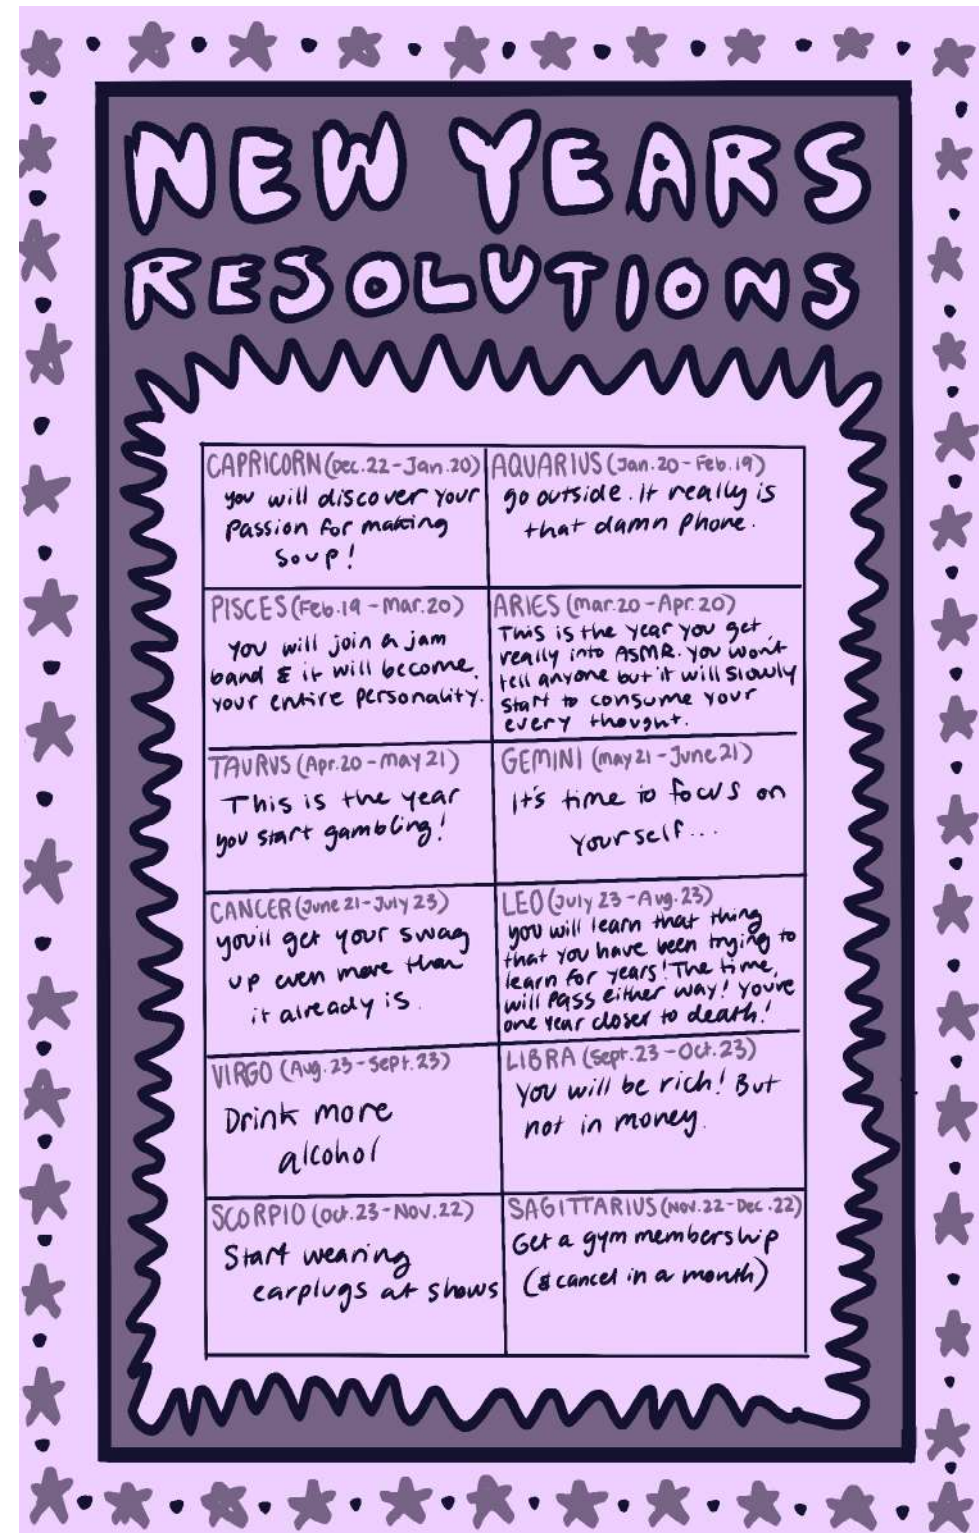 NEW YEARS
RESOLUTIONS
CAPRICORN (Dec. 22 - Jan. 20)
you will discover your
passion for making
soup!
AQUARIUS (Jan. 20 - Feb. 19)
go outside. It really is
that damn phone.
PISCES (Feb. 19 - Mar. 20)
you will join a jam
band & it will become
your entire personality.
ARIES (Mar. 20 - Apr. 20)
This is the year you get
really into ASMR. you wont
tell anyone but it will slowly
start to consume your
every thought.
TAURUS (Apr. 20 - May 21)
This is the year
you start gambling!
GEMINI (May 21 - June 21)
It's time to focus on
yourself...
CANCER (June 21 - July 23)
you'll get your swag
up even more than
it already is.
LEO (July 23 - Aug. 23)
you will learn that thing
that you have been trying to
learn for years! The time,
will pass either way! you're
one year closer to death!
VIRGO (Aug. 23 - Sept. 23)
Drink more
alcohol
LIBRA (Sept. 23 - Oct. 23)
You will be rich! But
not in money.
SCORPIO (Oct. 23 - Nov. 22)
Start wearing
earplugs at shows
SAGITTARIUS (Nov. 22 - Dec. 22)
Get a gym membership
(& cancel in a month)